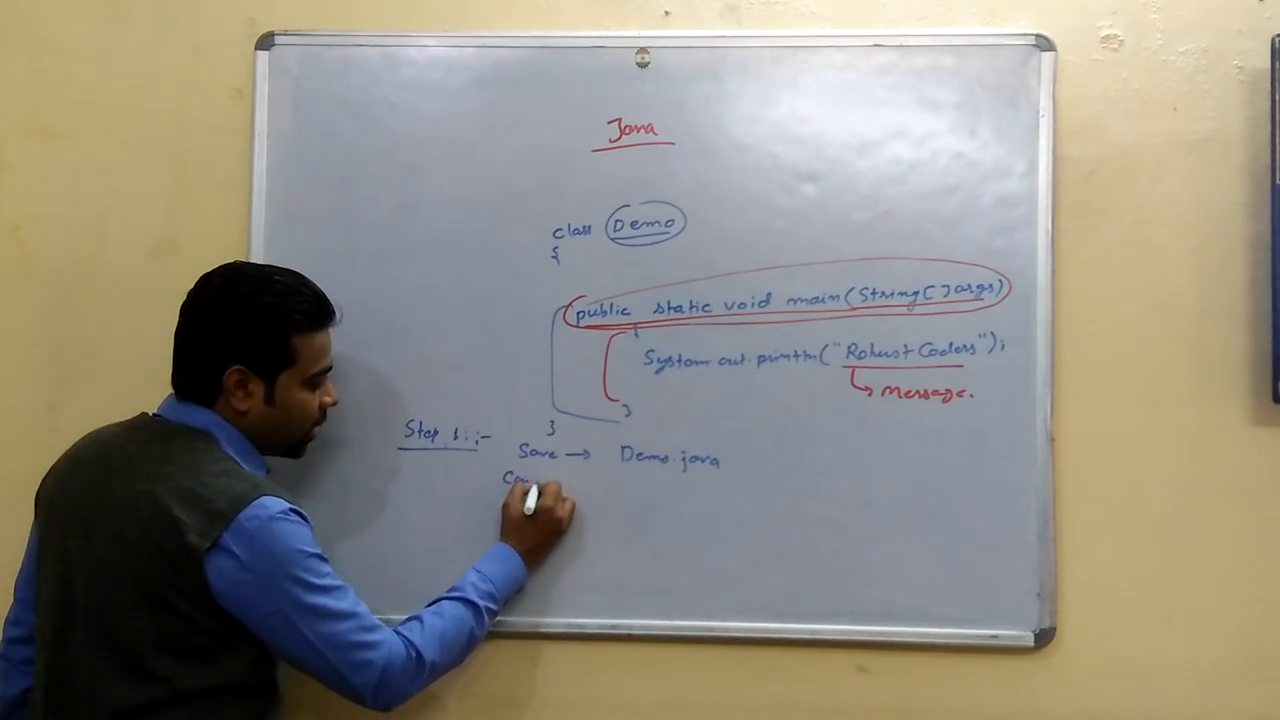 Java
class Demo
{
public static void main(String[]args)
{
System.out.println("Robust Coders");
Message.
}
}
Step 1:-
Save → Demo.java